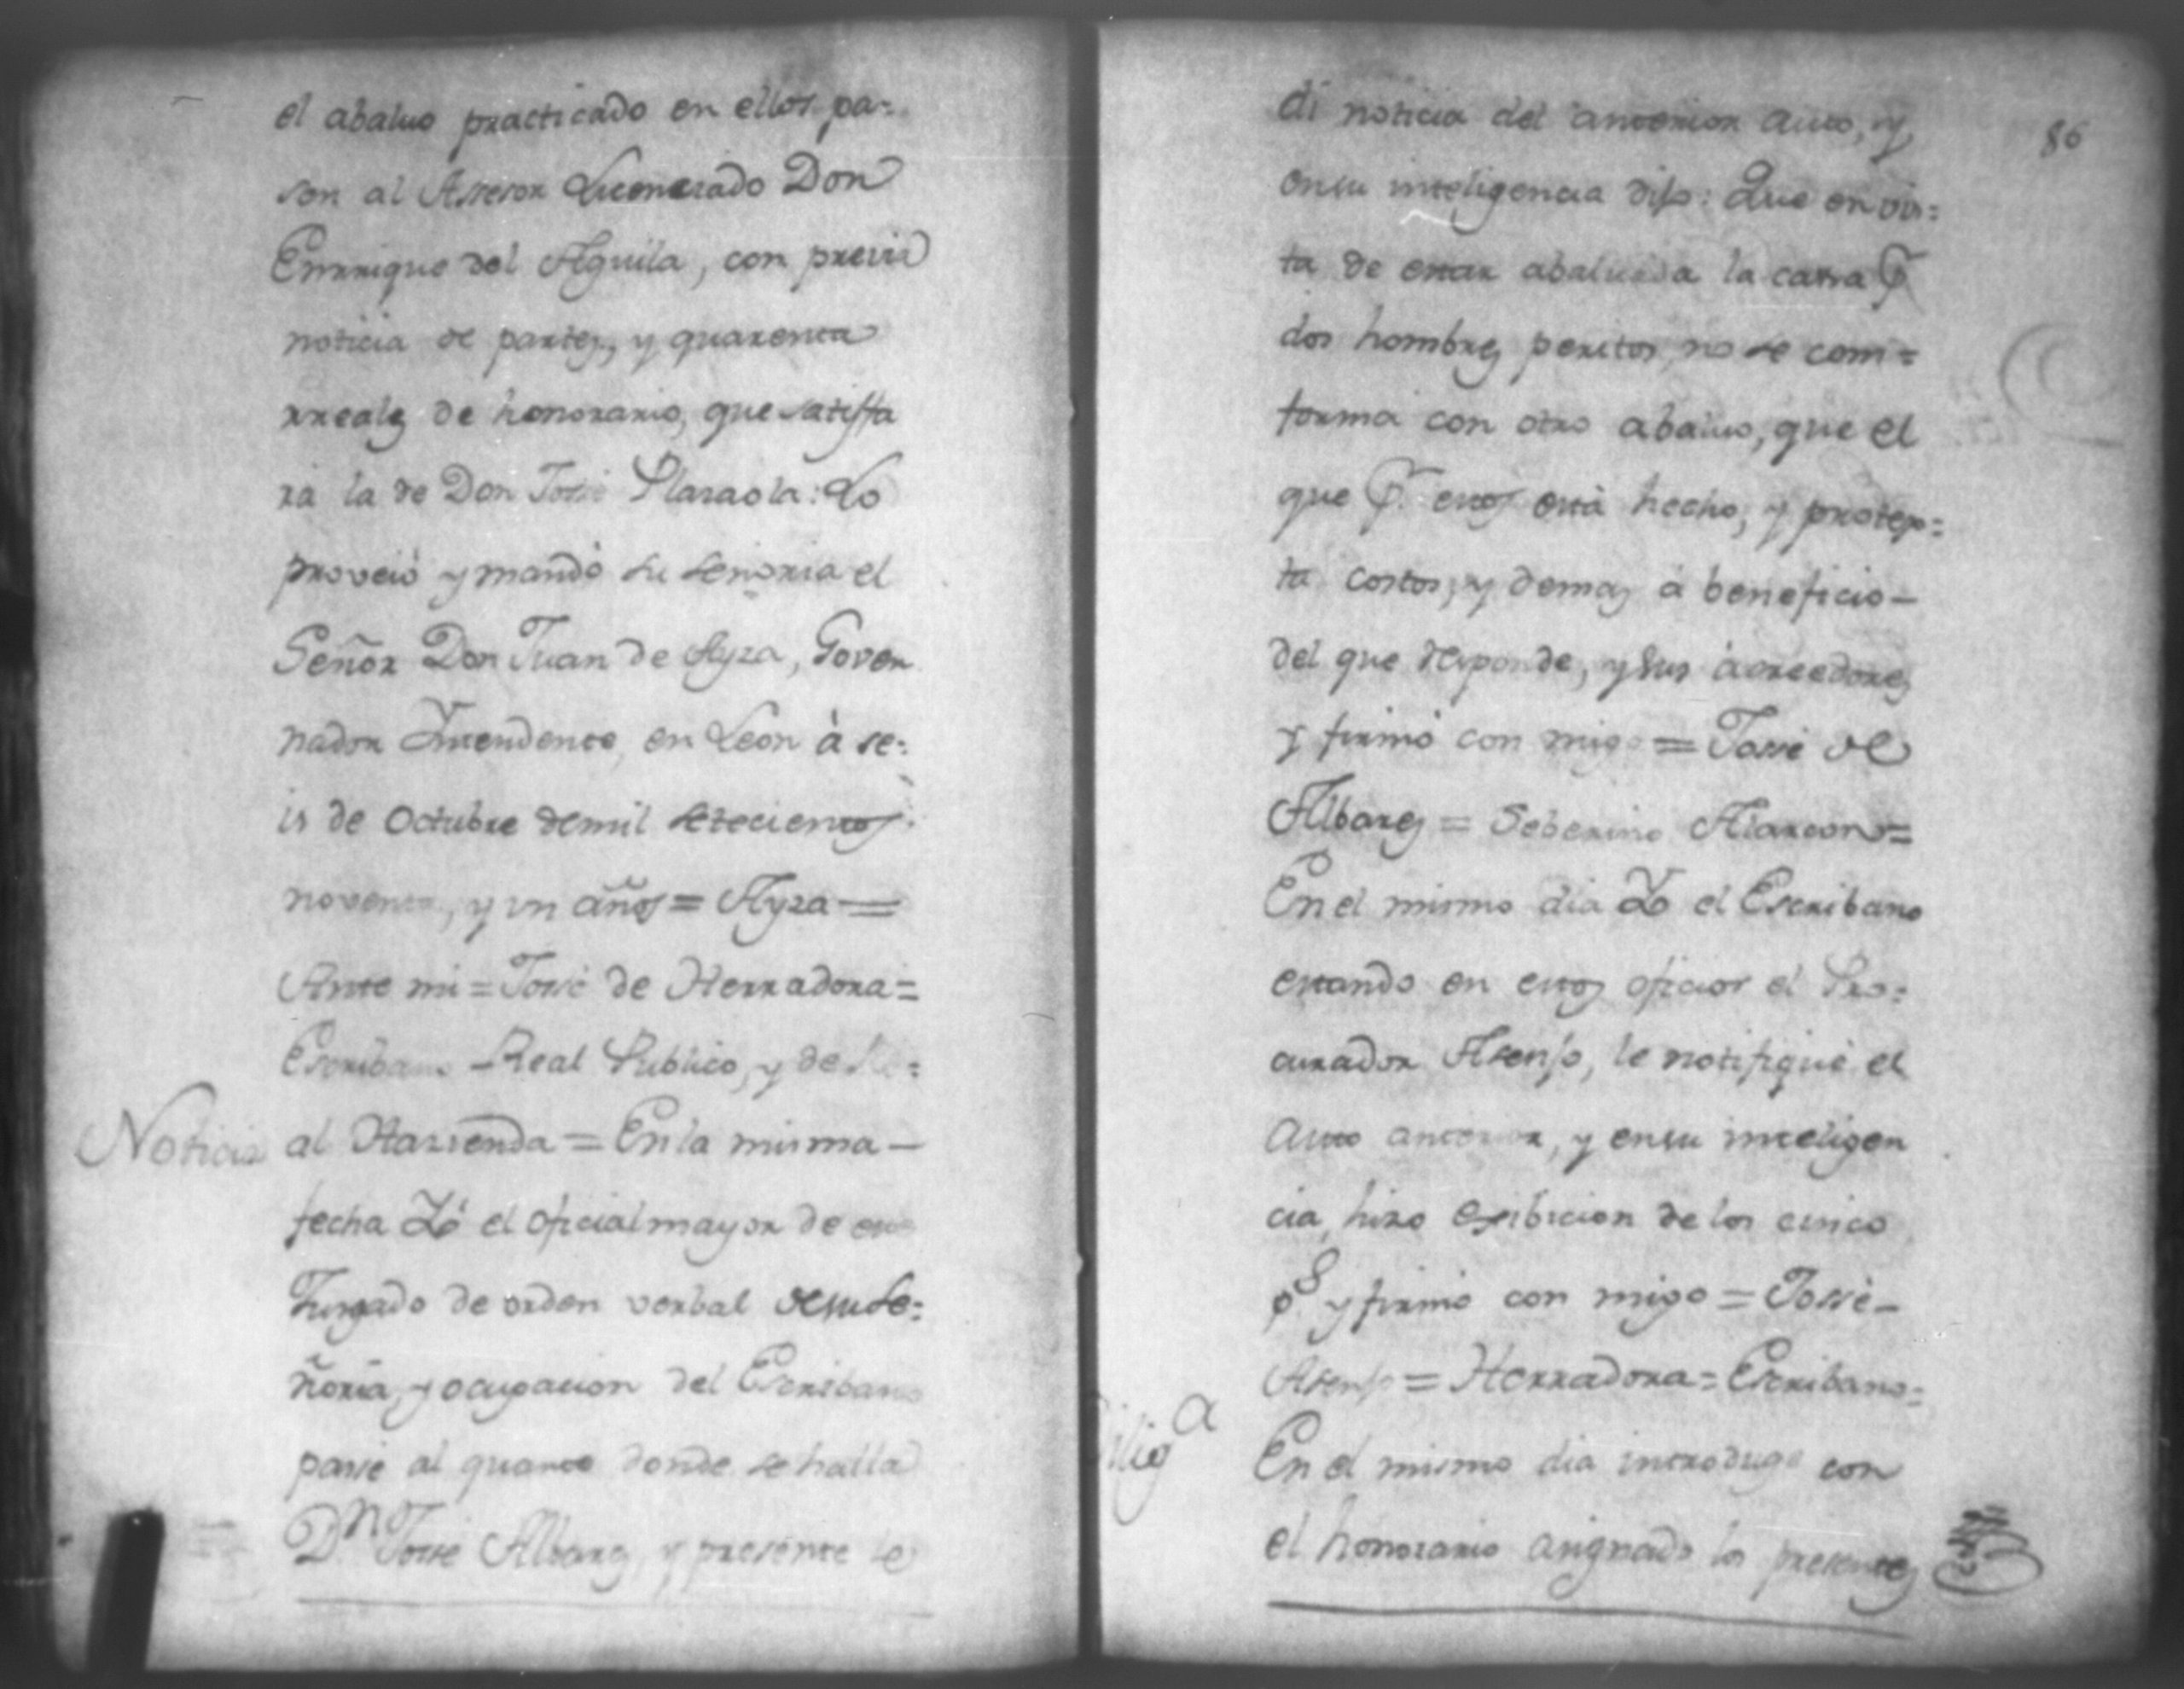 el abaluo practicado en ellos, pa=
sen al Assesor Licenciado Don
Enrrique del Aguila, con previa
noticia de partes, y quarenta
rreales de honorario, que satisfa
rá la de Don Josse Plazaola: Lo
proveió y mandó su señoria el
Señor Don Juan de Ayza, Gover
nador Yntendente, en Leon à se=
is de Octubre demil setecientos
noventa, y un años = Ayza =
Ante mi = Josse de Herradora =
Escribano Real Publico, y de Re=
Noticia al Hazienda = En la misma -
fecha Yó el oficial mayor de este
Juzgado de orden verbal desu Se=
ñoria, y ocupacion del Escribano
passe al quarto donde se halla
Dn. Josse Albares, y presente le
86
di noticia del anterior auto, y
ensu inteligencia dijo: Que en vis=
ta de estar abaluada la cassa pr.
dos hombres peritos, no se com=
forma con otro abaluo, que el
que pr. estos está hecho, y protes=
ta costos, y demas à beneficio -
del que responde, y sus acreedores
y firmó con migo = Josse de
Albares = Seberino Alarcon =
En el mismo dia Yo el Escribano
estando en estos oficios el Pro=
curador Asenjo, le notifiqué el
auto anterior, y ensu inteligen
cia, hizo exibicion de los cinco
ps. y firmó con migo = Josse -
Asenjo = Herradora = Escribano =
Diliga En el mismo dia introduge con
el honorario asignado los presentes